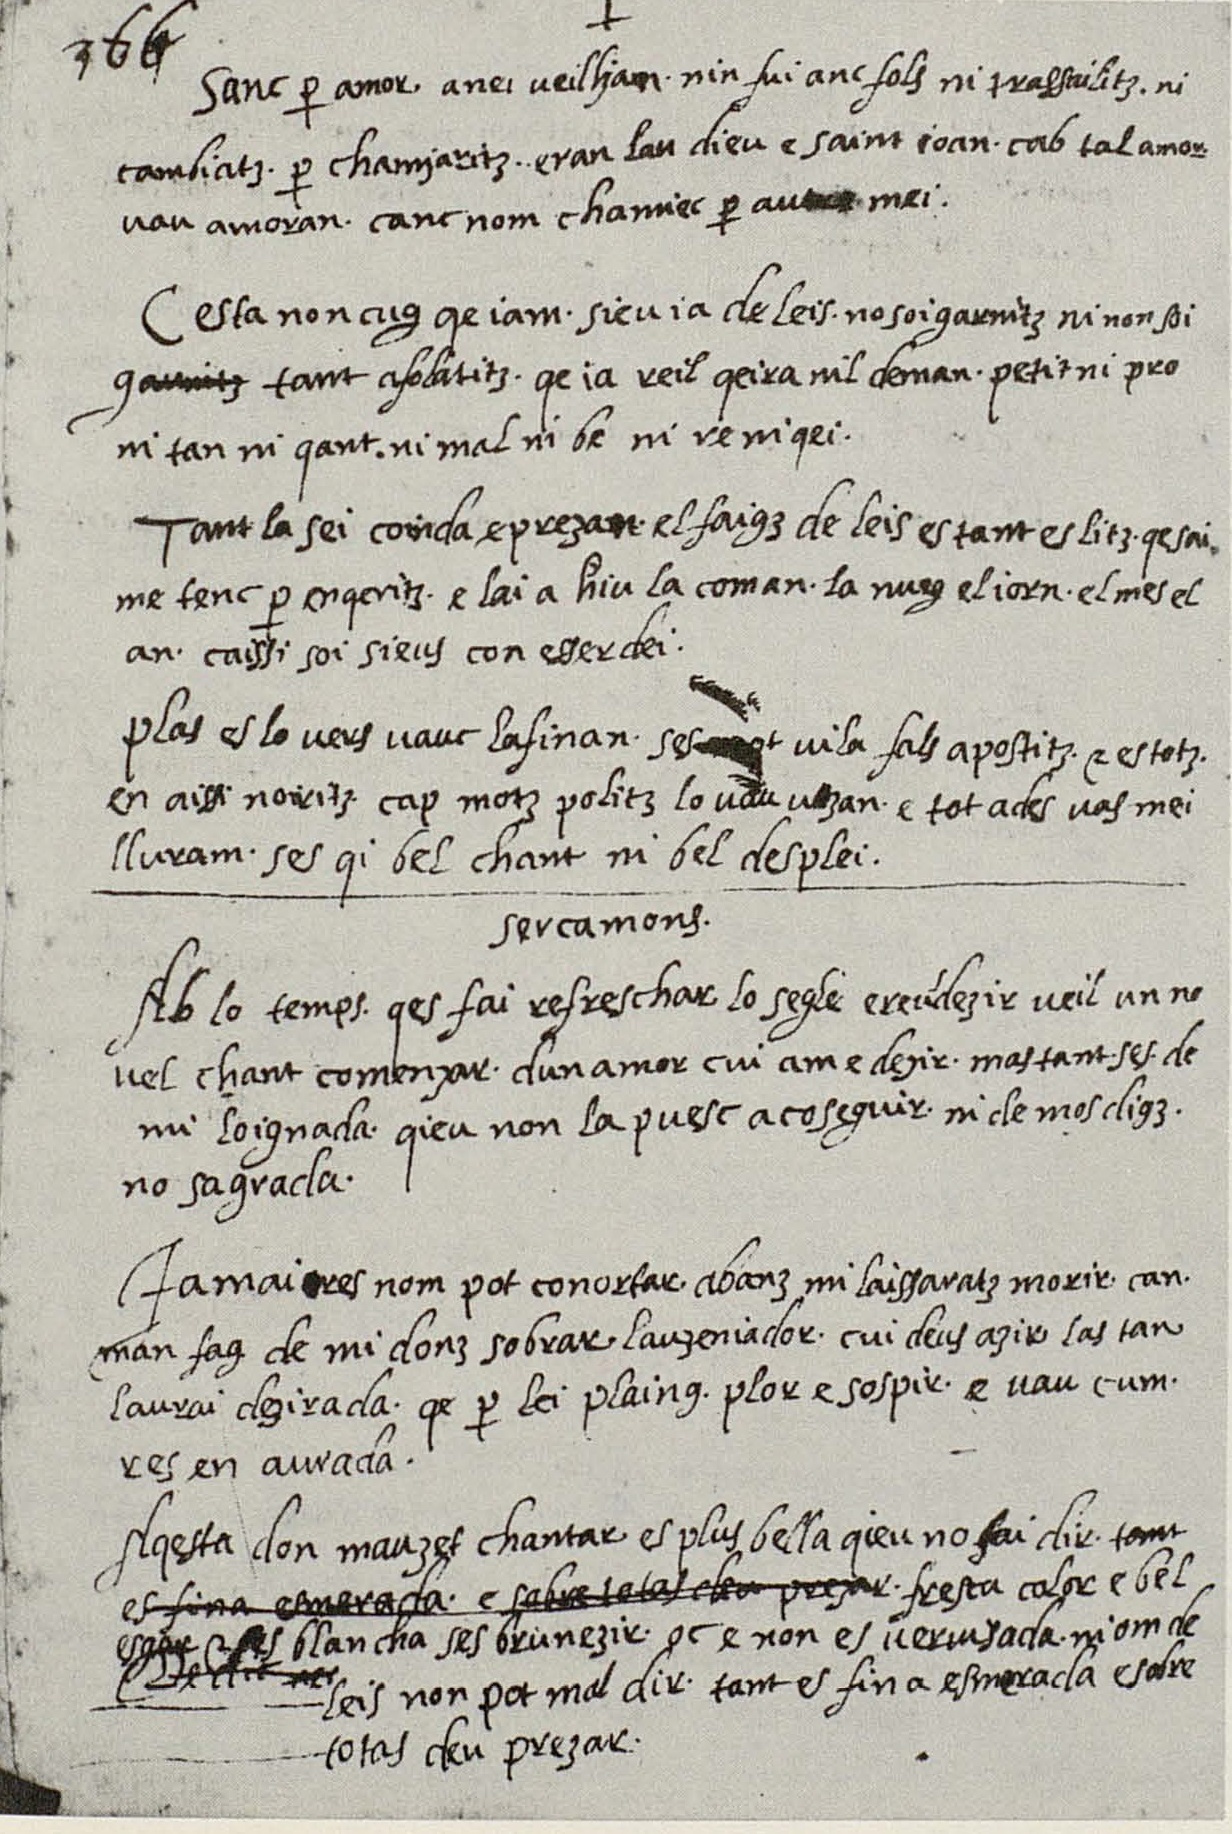 366
Sanc p amor. anei veilhan. nin fui anc fols ni trassailitz. ni
cambiatz. p chamiaritz. eran lau dieu e saint ioan. cab tal amor
vau amoran. canc nom chamiec p autre mei.
Cesta non cug qe iam. sieu ia de leis. no soi garnitz ni non soi
garnitz tant afolatitz. qe ia reil qeira nil deman. petit ni pro
ni tan ni qant. ni mal ni be ni re ni qei.
Tant la sei coinda e prezant. el faigz de leis es tant eslitz. qe sai
me tenc p enqeritz. e lai a hiu la coman. la nueg el iorn. el mes el
an. caissi soi sieus con esser dei.
Plas es lo vers vauc lafinan. ses mot vila fals apostitz. e es totz.
en aissi noiritz. cap motz politz lo vau uzan. e tot ades vas mei
lluram. ses qi bel chant ni bel desplei.
sercamons.
Ab lo temps. qes fai refreschar lo segle ereudezir veil un no
vel chant comenzar. dun amor cui am e dezir. mas tant. ses. de
mi loignada. qieu non la puesc acoseguir. ni de mos digz.
no sagrada.
Ia mai res nom pot conortar. abanz mi laissaratz morir. can.
man fag de mi donz sobrar. lauzeniador. cui deus azir las tan
laurai dezirada. qe p lei plaing. plor e sospir. e vau cum.
res en aurada.
Aqesta don mauzet chantar es plus bella qieu no sai dir. tant
es fina esmerada. e sobre totas deu prezar. fresca color e bel
esgar e es blancha ses brunezir. oc e non es vermiada. ni om de
leis non pot mal dir. tant es fina esmerada e sobre
totas deu prezar.